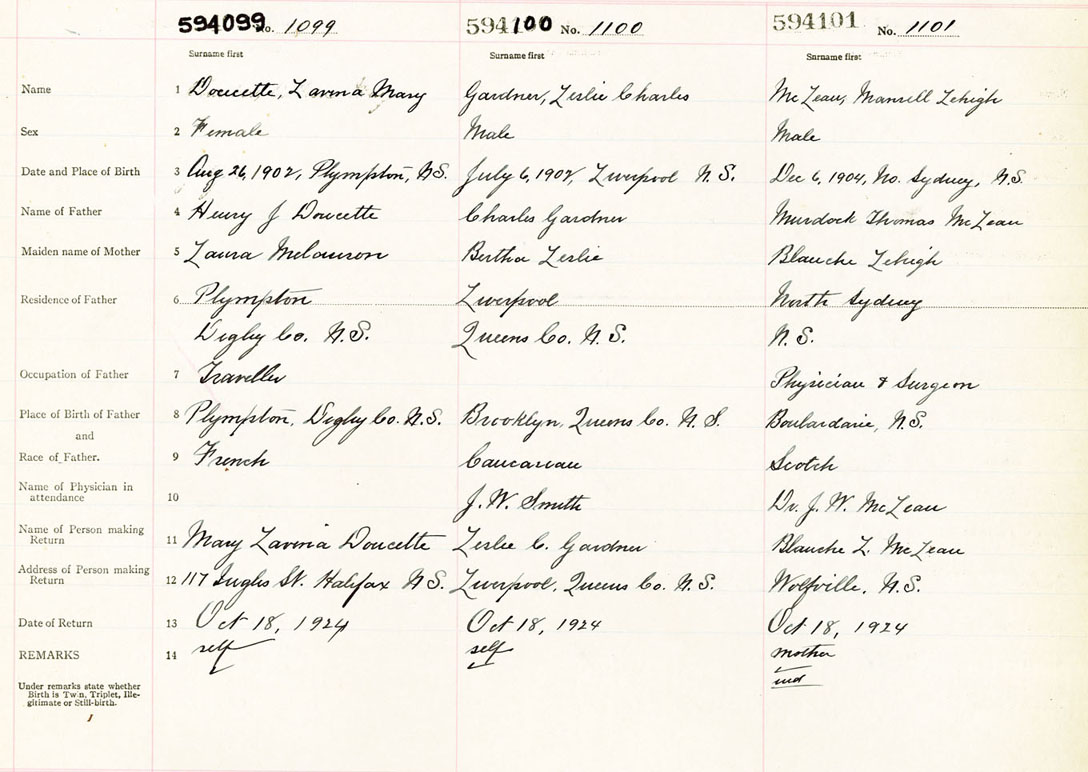 594099 No. 1099 594100 No. 1100 594101 No. 1101
Surname first Surname first Surname first
Name 1 Doucette, Lavina Mary Gardner, Leslie Charles McLean, Mansell Lehigh
Sex 2 Female Male Male
Date and Place of Birth 3 Aug 26, 1902, Plympton, N.S. July 6, 1902, Liverpool N.S. Dec 6, 1904, No. Sydney, N.S.
Name of Father 4 Henry J Doucette Charles Gardner Murdock Thomas McLean
Maiden name of Mother 5 Laura Melanson Bertha Leslie Blanche Lehigh
Residence of Father 6 Plympton Liverpool North Sydney
Digby Co. N.S. Queens Co. N.S. N.S.
Occupation of Father 7 Traveller Physician & Surgeon
Place of Birth of Father 8 Plympton, Digby Co. N.S. Brooklyn, Queens Co. N.S. Boulardarie, N.S.
and
Race of Father. 9 French Caucasian Scotch
Name of Physician in
attendance 10 J. W. Smith Dr. J. W. McLean
Name of Person making
Return 11 Mary Lavinia Doucette Leslie C. Gardner Blanche L. McLean
Address of Person making
Return 12 117 Inglis St. Halifax N.S. Liverpool, Queens Co. N.S. Wolfville, N.S.
Date of Return 13 Oct 18, 1924 Oct 18, 1924 Oct 18, 1924
REMARKS 14 self self mother
ind
Under remarks state whether
Birth is Twin, Triplet, Ille-
gitimate or Still-birth.
1